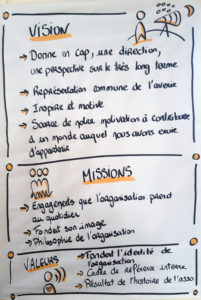 VISION
→ Donne un cap, une direction,
une perspective sur le très long terme
→ Représentation commune de l'avenir
→ Inspire et motive
→ Source de notre motivation à contribuer
à un monde auquel nous avons envie
d'appartenir
MISSIONS
→ Engagements que l'organisation prend
au quotidien
→ Fondent son image
→ Philosophie de l'organisation
VALEURS
→ Fondent l'identité de
l'organisation
→ Cadre de référence interne
→ Résultat de l'histoire de l'asso